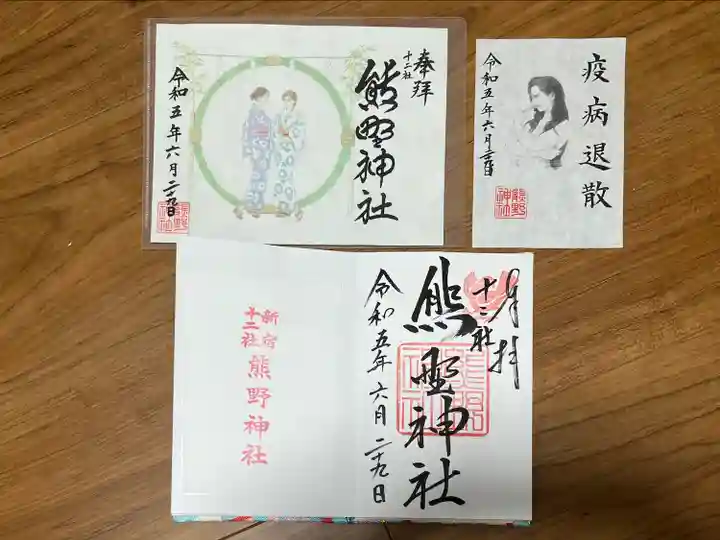 奉拝
十二社
熊野神社
令和五年六月二十九日
熊野
神社
疫病退散
令和五年六月二十九日
熊野
神社
奉拝
十二社
熊野神社
令和五年六月二十九日
新宿
十二社
熊野神社